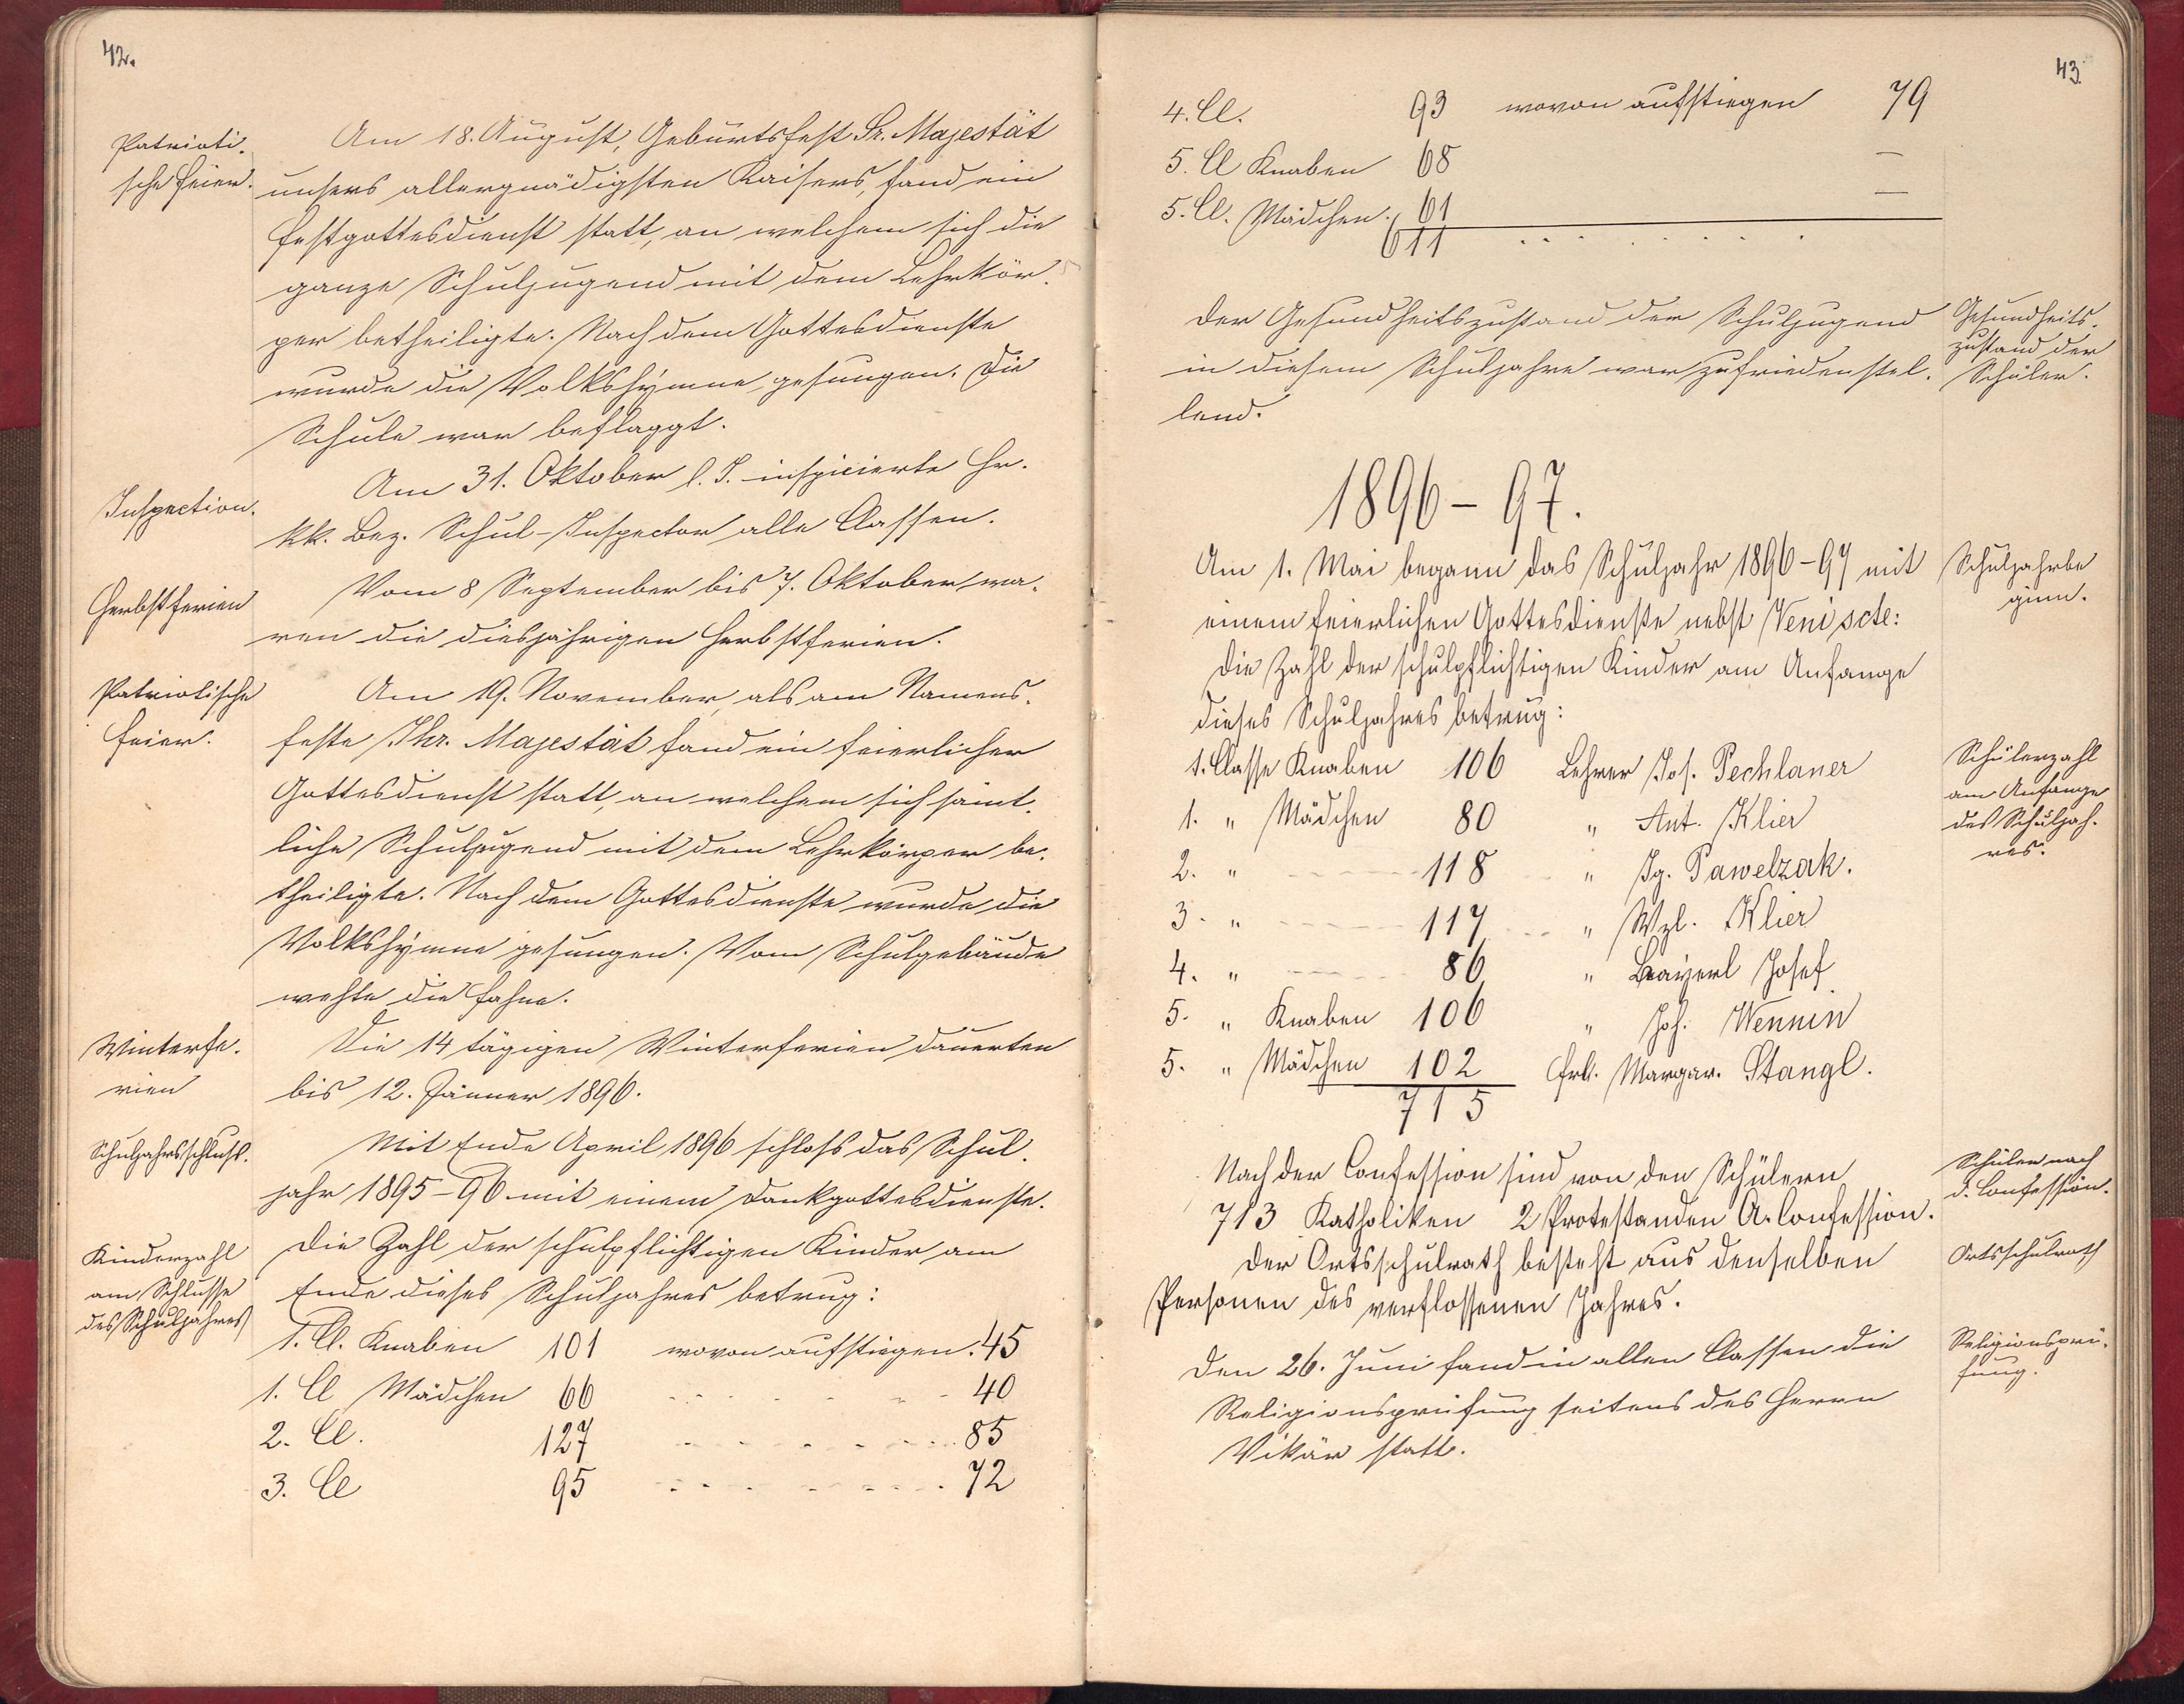 42.
Patrioti-
sche Feier.
Am 18. August, Geburtsfest Sr. Majestät
unsers allergnädigsten Kaisers, fand ein
Festgottesdienst statt, an welchem sich die
ganze Schuljugend mit dem Lehrkör-
per betheiligte. Nach dem Gottesdienste
wurde die Volkshymne gesungen. Die
Schule war beflaggt.
Inspection.
Am 31. Oktober l. J. inspicierte Hr.
kk. Bez. Schul-Inspector alle Classen.
Herbstferien
Vom 8 September bis 7. Oktober wa-
ren die diesjährigen Herbstferien.
Patriotische
Feier.
Am 19. November, als am Namens-
feste Ihr. Majestät fand ein feierlicher
Gottesdienst statt, an welchem sich sämt-
liche Schuljugend mit dem Lehrkörper be-
theiligte. Nach dem Gottesdienste wurde die
Volkshymne gesungen. Vom Schulgebäude
wehte die Fahne.
Winterfe-
rien
Die 14 tägigen Winterferien dauerten
bis 12. Jänner 1896.
Schuljahrsschluß.
Mit Ende April 1896 schloß das Schul-
jahr 1895-96 mit einem Dankgottesdienste.
Kinderzahl
am Schlusse
des Schuljahres
Die Zahl der schulpflichtigen Kinder am
Ende dieses Schuljahres betrug:
1. Cl. Knaben 101 wovon aufstiegen 45
1. Cl Mädchen 66 40
2. Cl. 127 85
3. Cl 95 72
43.
4. Cl. 93 wovon aufstiegen 79
5. Cl Knaben 68 —
5. Cl. Mädchen 61 —
611
Der Gesundheitszustand der Schuljugend
in diesem Schuljahre war zufriedenstel-
lend.
Gesundheits-
zustand der
Schüler.
1896-97.
Am 1. Mai begann das Schuljahr 1896-97 mit
einem feierlichen Gottesdienste nebst Veni scte:
Schuljahrbe
ginn.
Die Zahl der schulpflichtigen Kinder am Anfange
dieses Schuljahres betrug:
Schülerzahl
am Anfange
des Schuljah-
res.
1. Classe Knaben 106 Lehrer Jos. Pechlaner
1. " Mädchen 80 " Ant. Klier
2. " 118 " Ig. Pawelzak.
3. " 117 " Wzl. Klier
4. " 86 " Bayerl Josef
5. " Knaben 106 " Joh. Wennin
5. " Mädchen 102 Frl. Margar. Stangl.
715
Nach der Confession sind von den Schülern
713 Katholiken 2 Protestanden A. Confession.
Schüler nach
d. Confession.
Der Ortsschulrath besteht aus denselben
Personen des verflossenen Jahres.
Ortsschulrath
Den 26. Juni fand in allen Classen die
Religionsprüfung seitens des Herrn
Vikär statt.
Religionsprü-
fung.